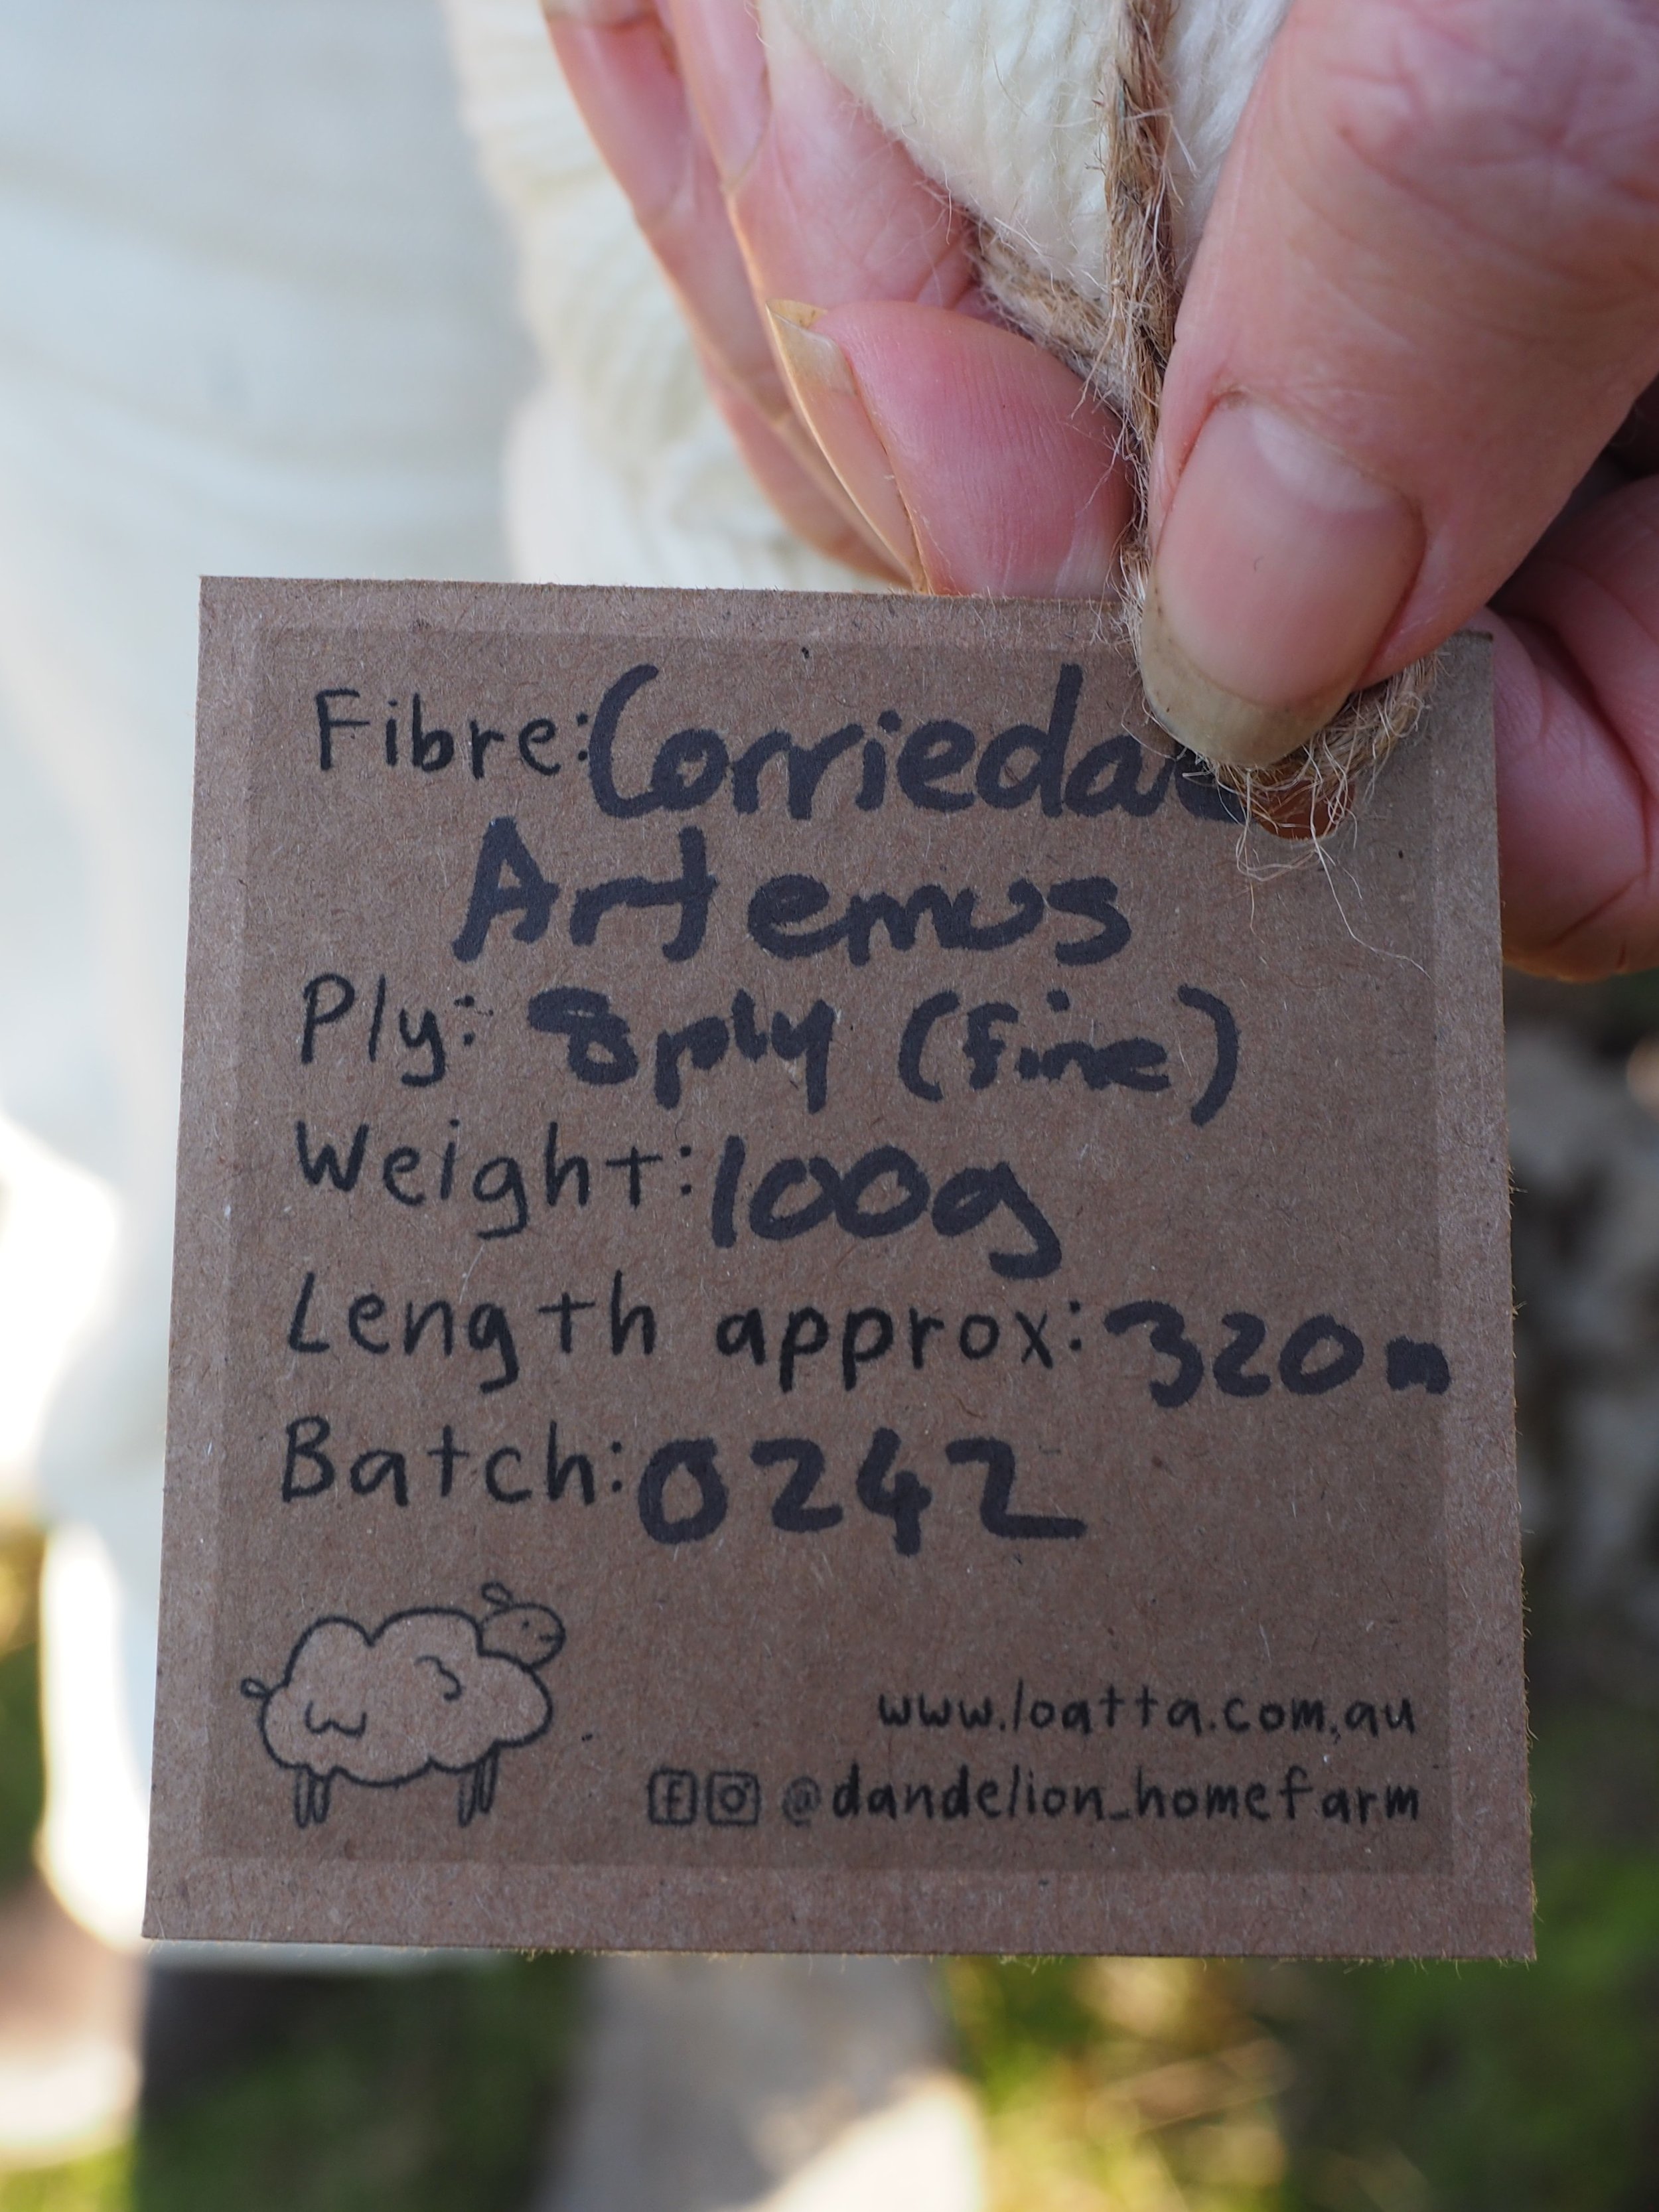 Fibre: Corriedale
Artemus
Ply: 8ply (fine)
Weight: 100g
Length approx: 320m
Batch: 0242
www.loatta.com.au
@dandelion_homefarm